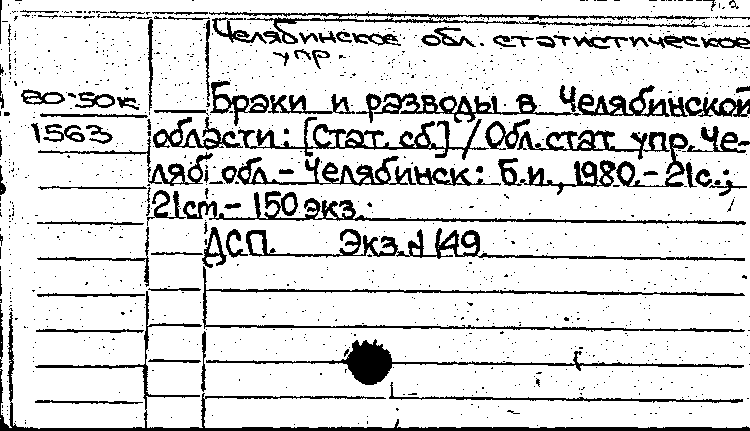 Челябинское обл. статистическое
упр.
80-50к Браки и разводы в Челябинской
1563 области: [Стат. сб.] / Обл. стат. упр. Че-
ляб. обл. - Челябинск: Б.и., 1980. - 21с.;
21cm. - 150 экз.
ДСП. Экз. № 149.